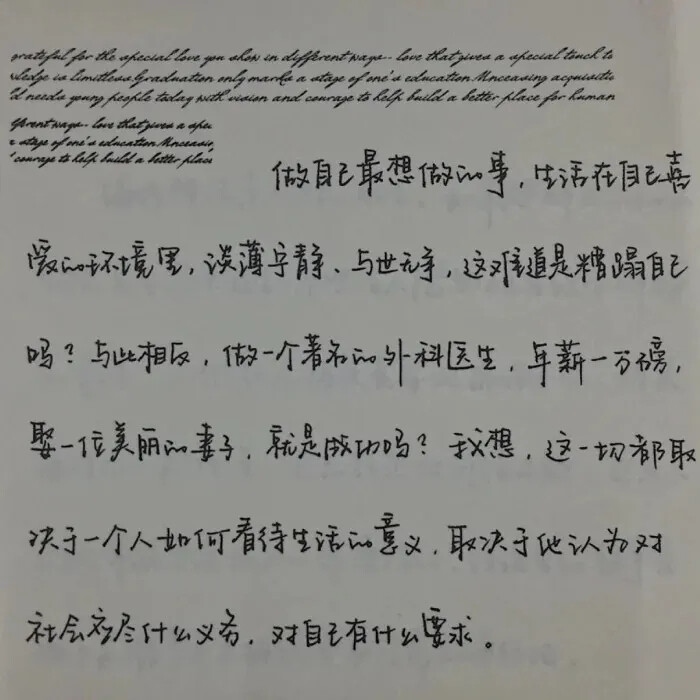 grateful for the special love you show in different ways.. love that gives a special touch to
wledge is limitless.Graduation only marks a stage of one's education.Unceasing acquisitio
ld needs young people today with vision and courage to help build a better place for human
fferent ways.. love that gives a spec
a stage of one's education.Unceasin,
courage to help build a better place
做自己最想做的事，生活在自己喜
爱的环境里，淡薄宁静、与世无争，这难道是糟蹋自己
吗？与此相反，做一个著名的外科医生，年薪一万磅，
娶一位美丽的妻子，就是成功吗？我想，这一切都取
决于一个人如何看待生活的意义，取决于他认为对
社会应尽什么义务，对自己有什么要求。